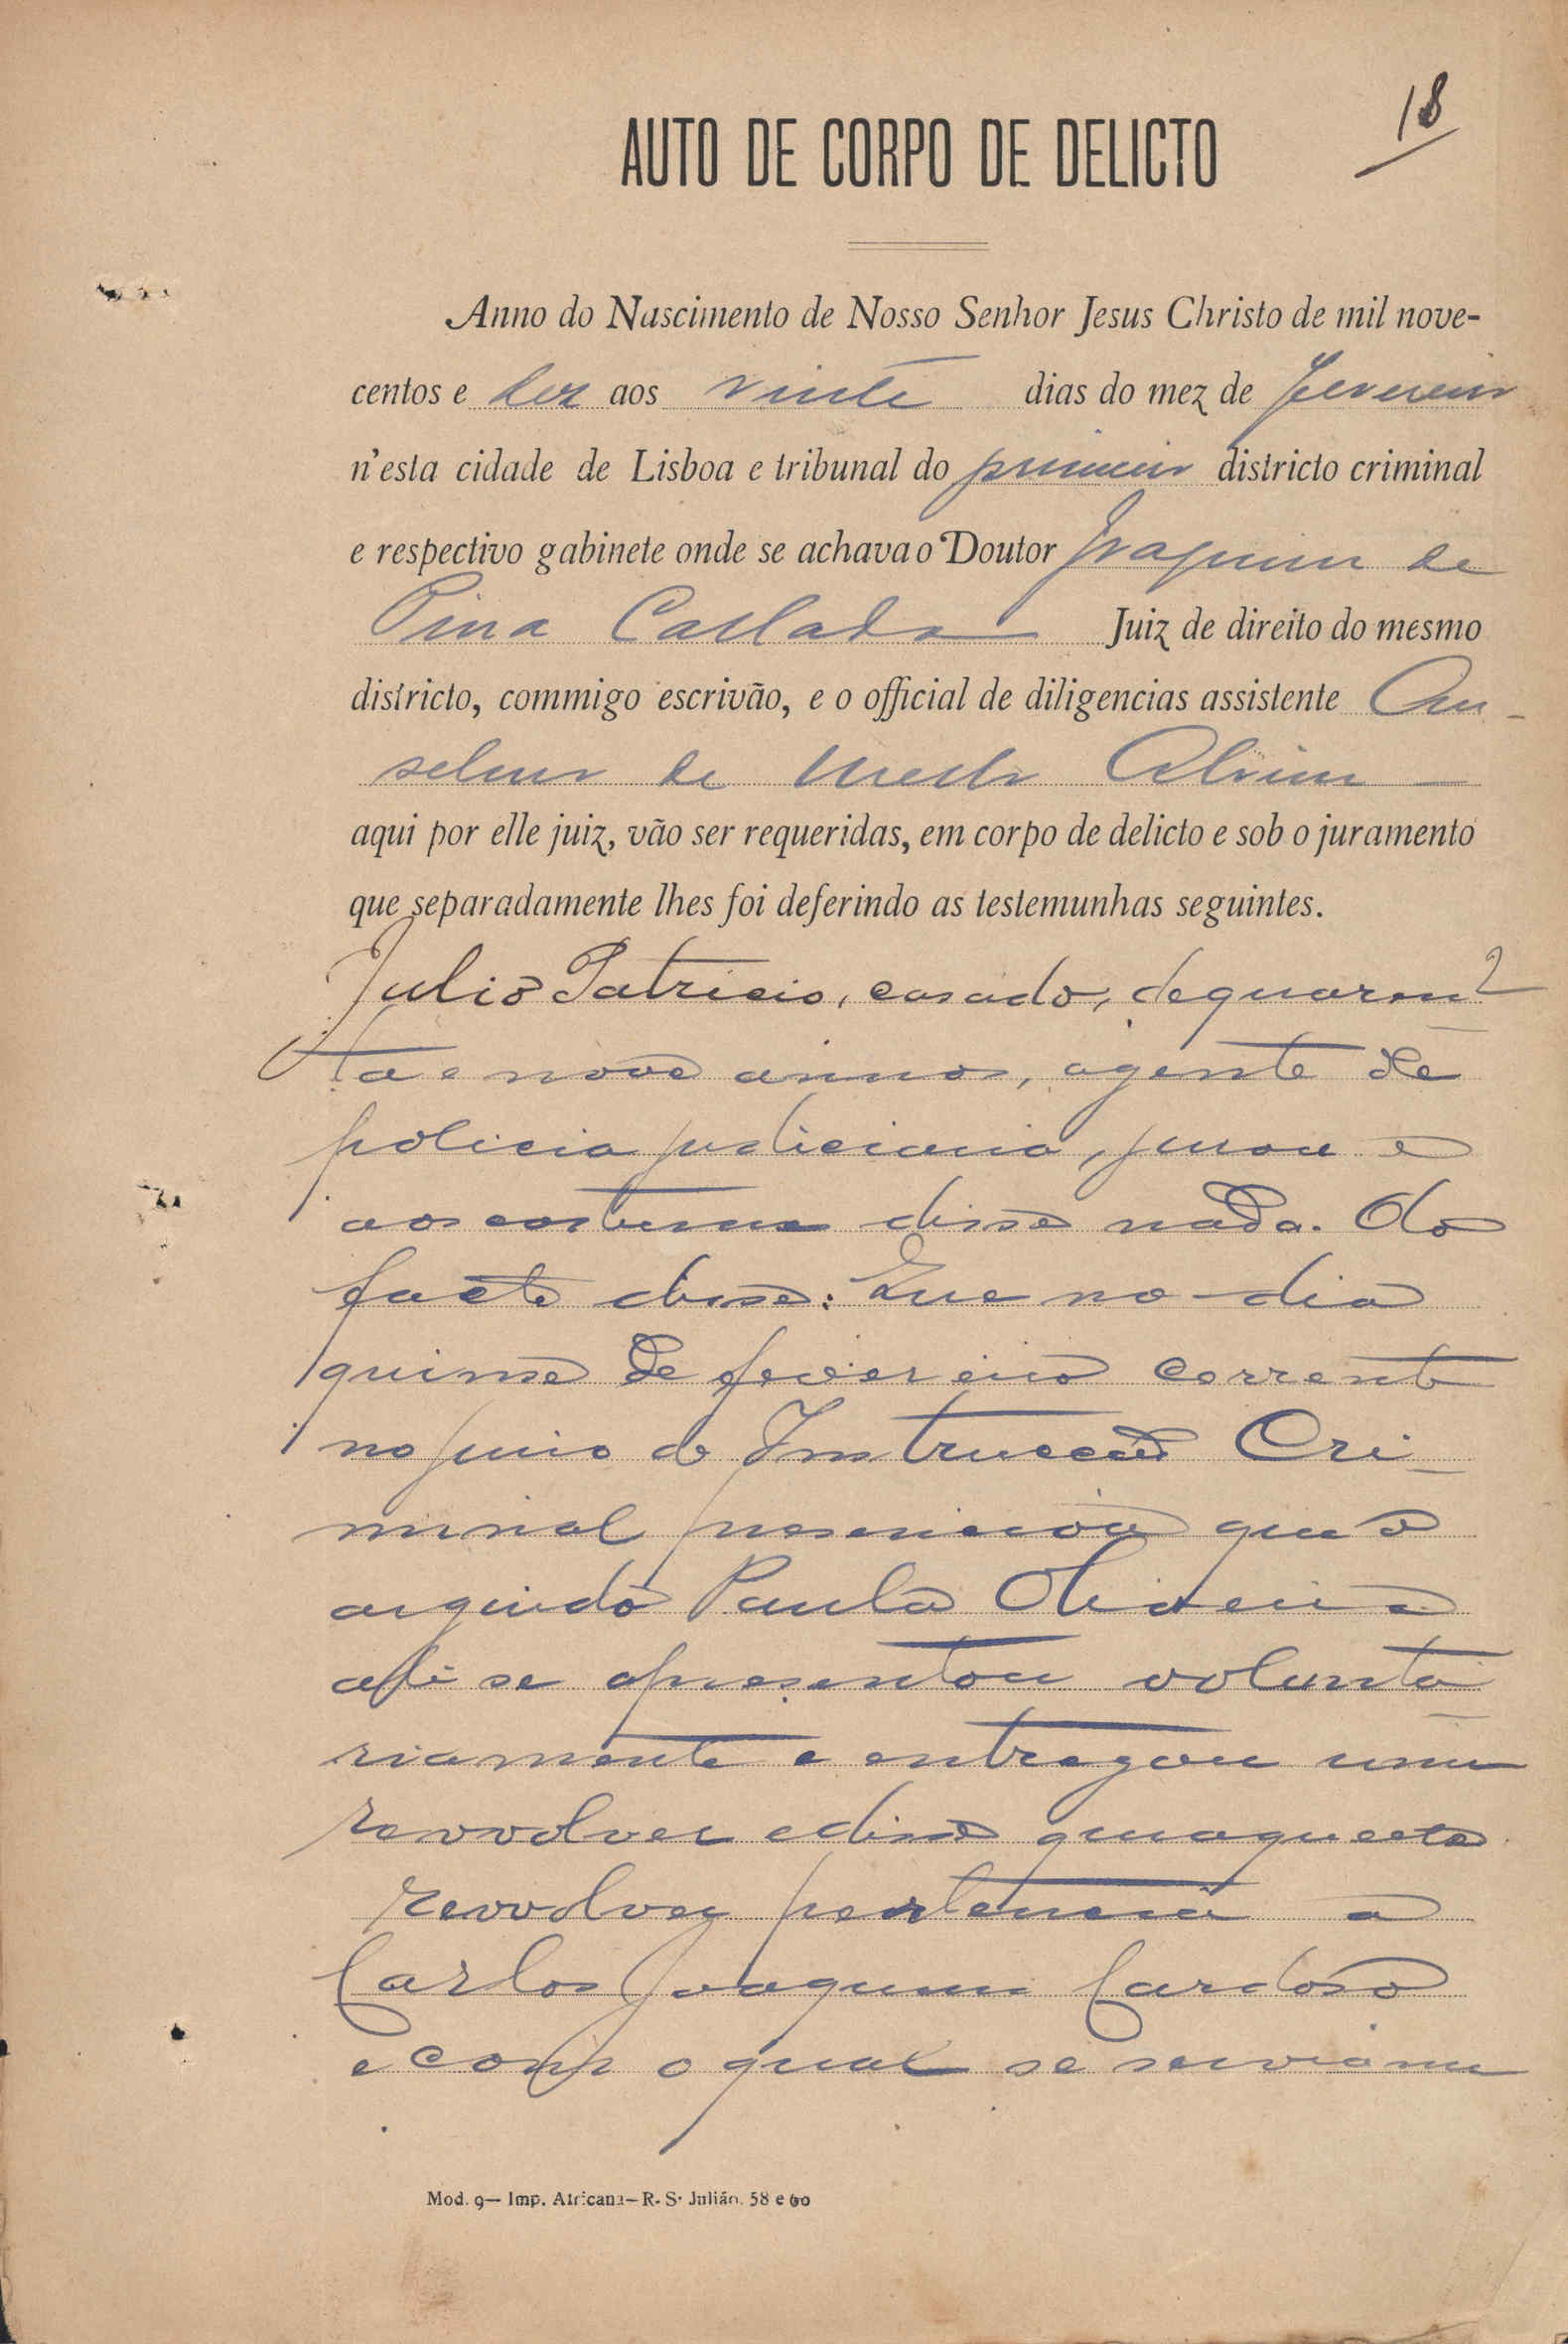 18
AUTO DE CORPO DE DELICTO
Anno do Nascimento de Nosso Senhor Jesus Christo de mil nove-
centos e dez aos vinte dias do mez de fevereiro
n'esta cidade de Lisboa e tribunal do primeiro districto criminal
e respectivo gabinete onde se achava o Doutor Joaquim de
Pina Callado Juiz de direito do mesmo
districto, commigo escrivão, e o official de diligencias assistente An-
selmo de Mello Alvim
aqui por elle juiz, vão ser requeridas, em corpo de delicto e sob o juramento
que separadamente lhes foi deferindo as testemunhas seguintes.
Julio Patricio, casado, de quaren
ta e nove annos, agente de
policia judiciaria, jurou e
aos costumes disse nada. Do
facto disse: Que no dia
quinse de fevereiro corrente
no juiso de Instrucção Cri-
minal presenciou que o
arguido Paula Oliveira
ali se apresentou volunta
riamente e entregou um
revvolver e disse que aquelle
revvolver pertencia a
Carlos Joaquim Cardoso
e com o qual se serviam
Mod. 9— Imp. Africana—R. S. Julião. 58 e 60